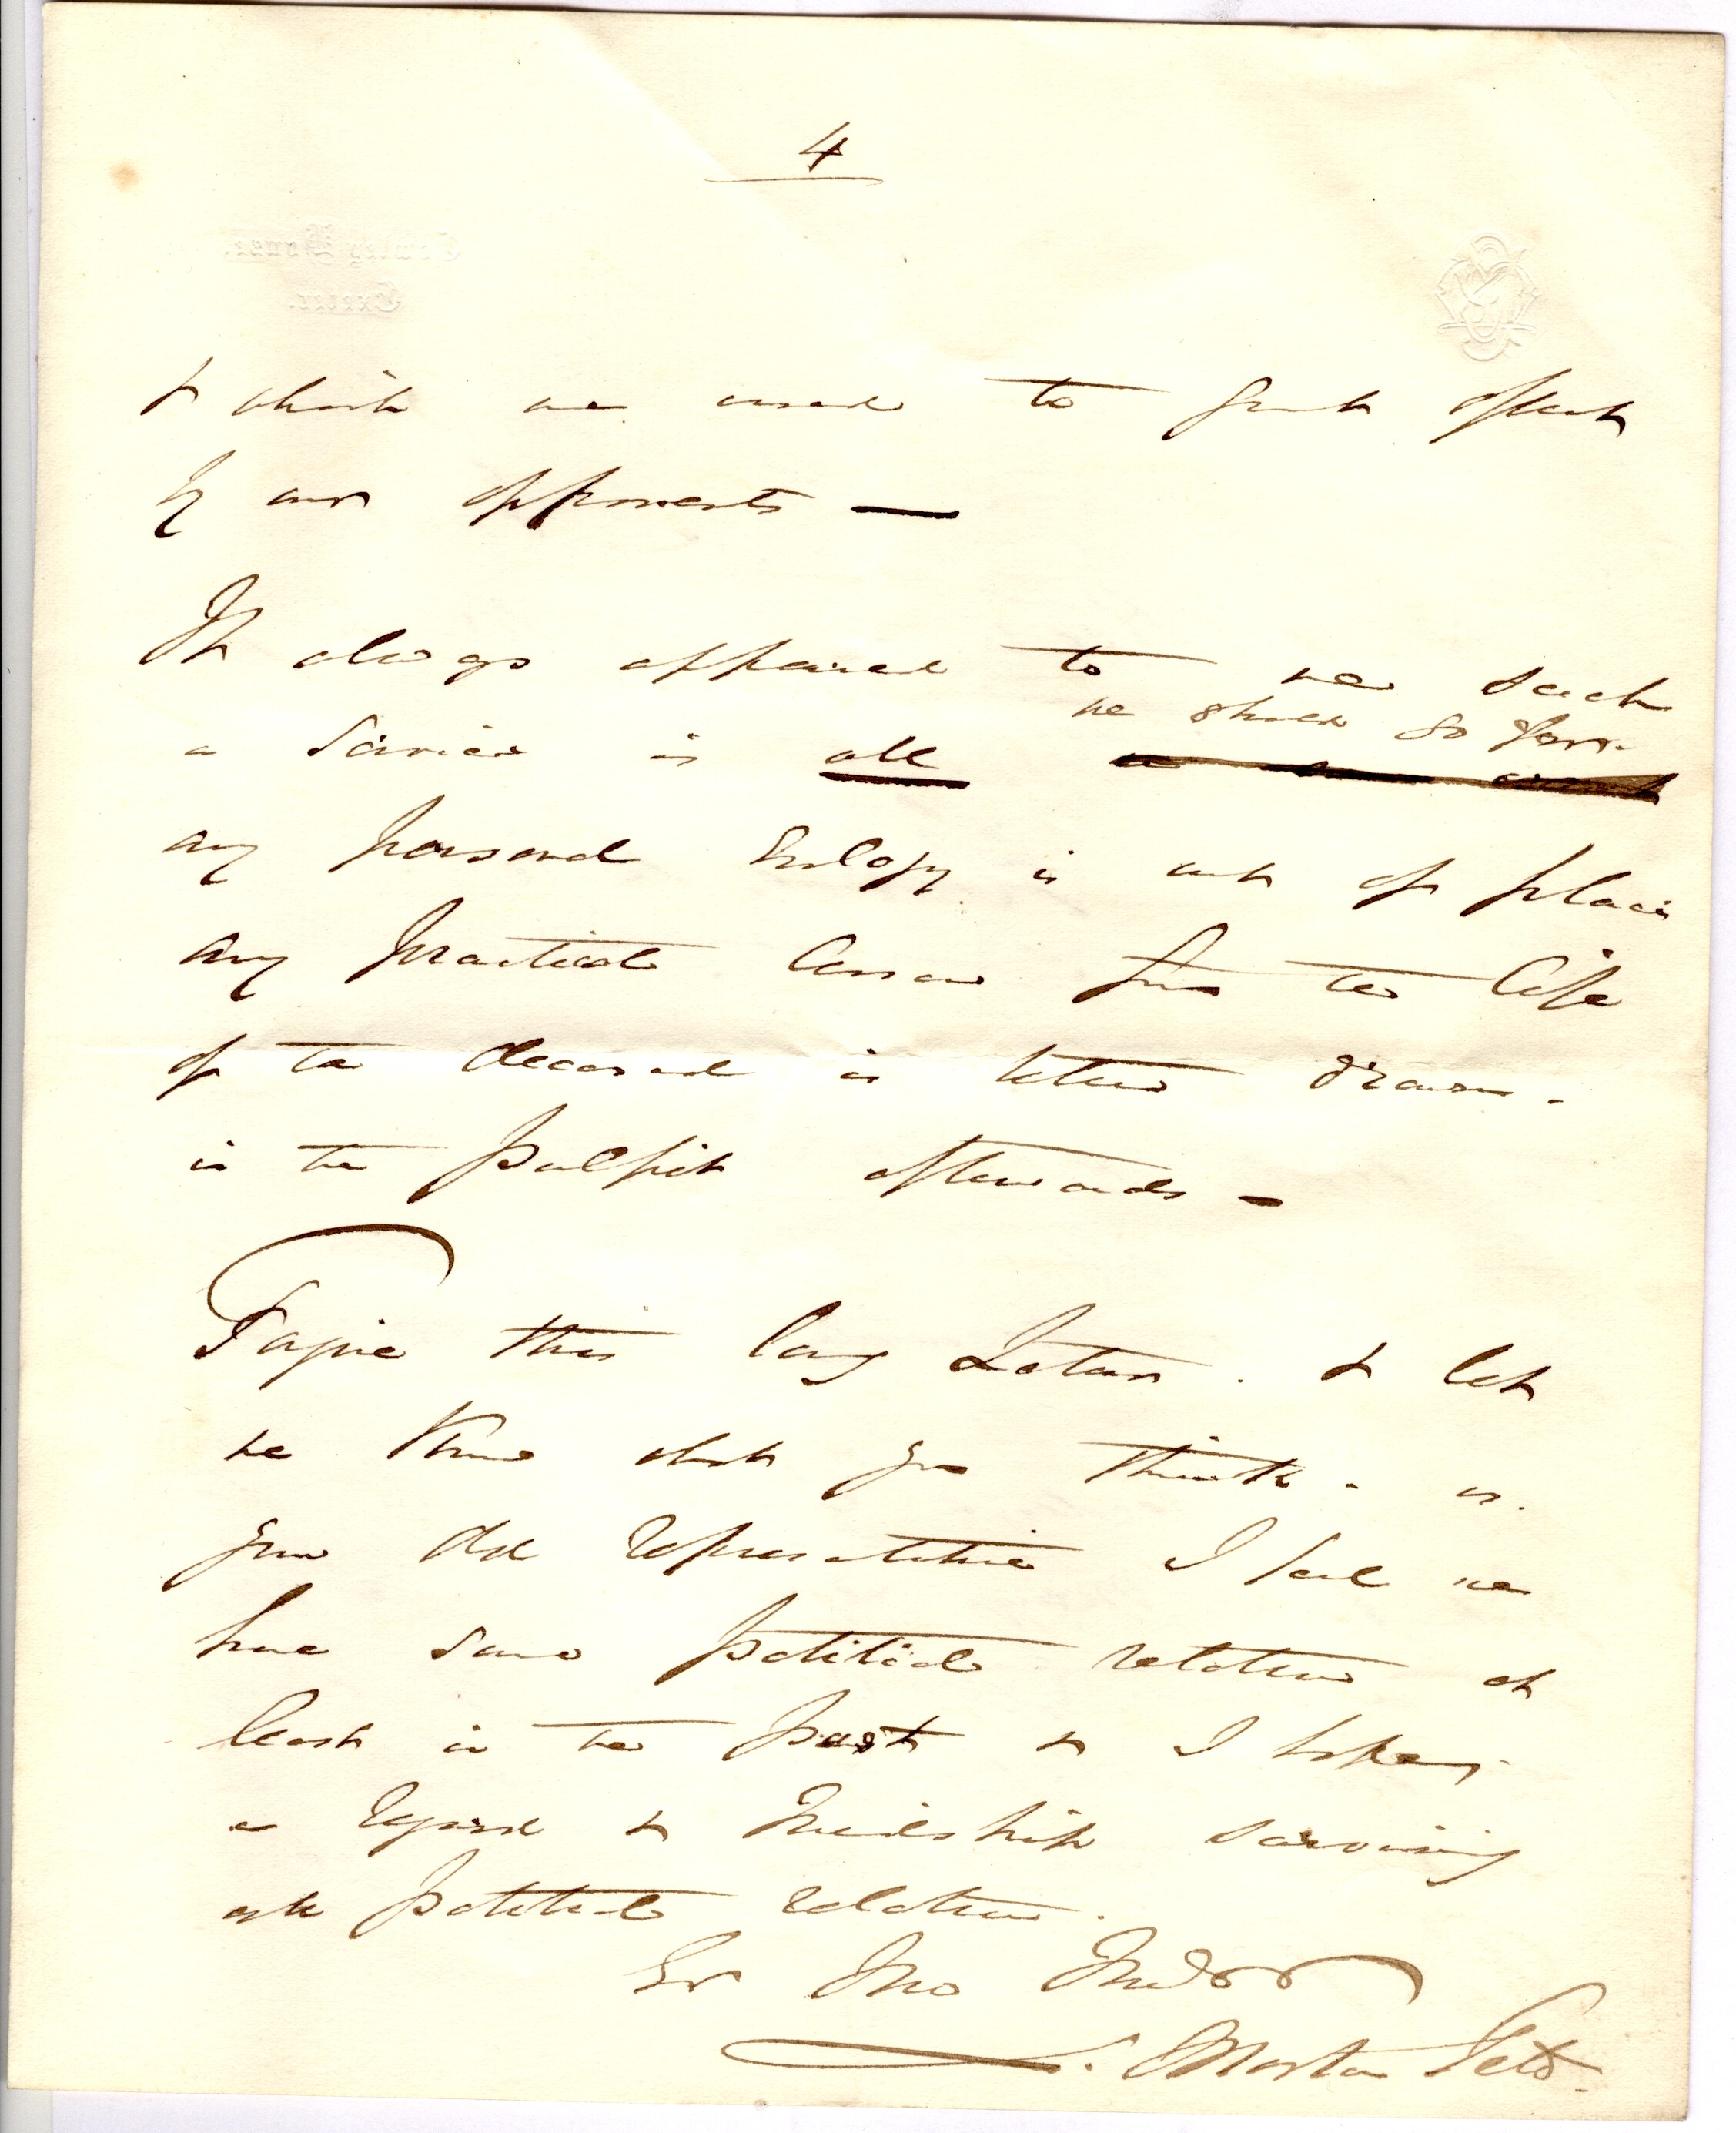 4
Cowley House.
Exeter.
& which are used to great effect
by our opponents —
It always appeared to me such
we should go for
a Service is all
any personal Eulogy is out of place
any practical lesson from the life
of the deceased is better drawn.
in the Pulpit afterwards —
Forgive this long Letter. & let
me know what you think. as.
your old representative I feel we
have some political relation at
least in the past & I hope
a regard & Friendship surviving
political relation.
Yr True Friend
S. Morton Peto.